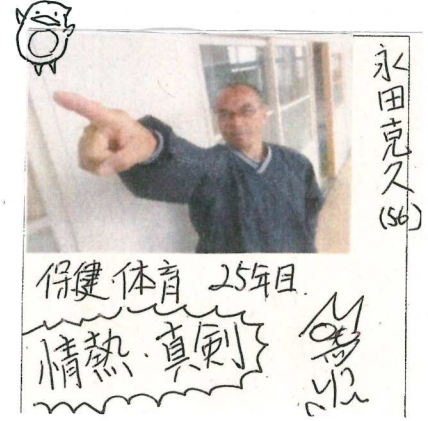 永田克久
(56)
保健・体育 25年目
情熱・真剣